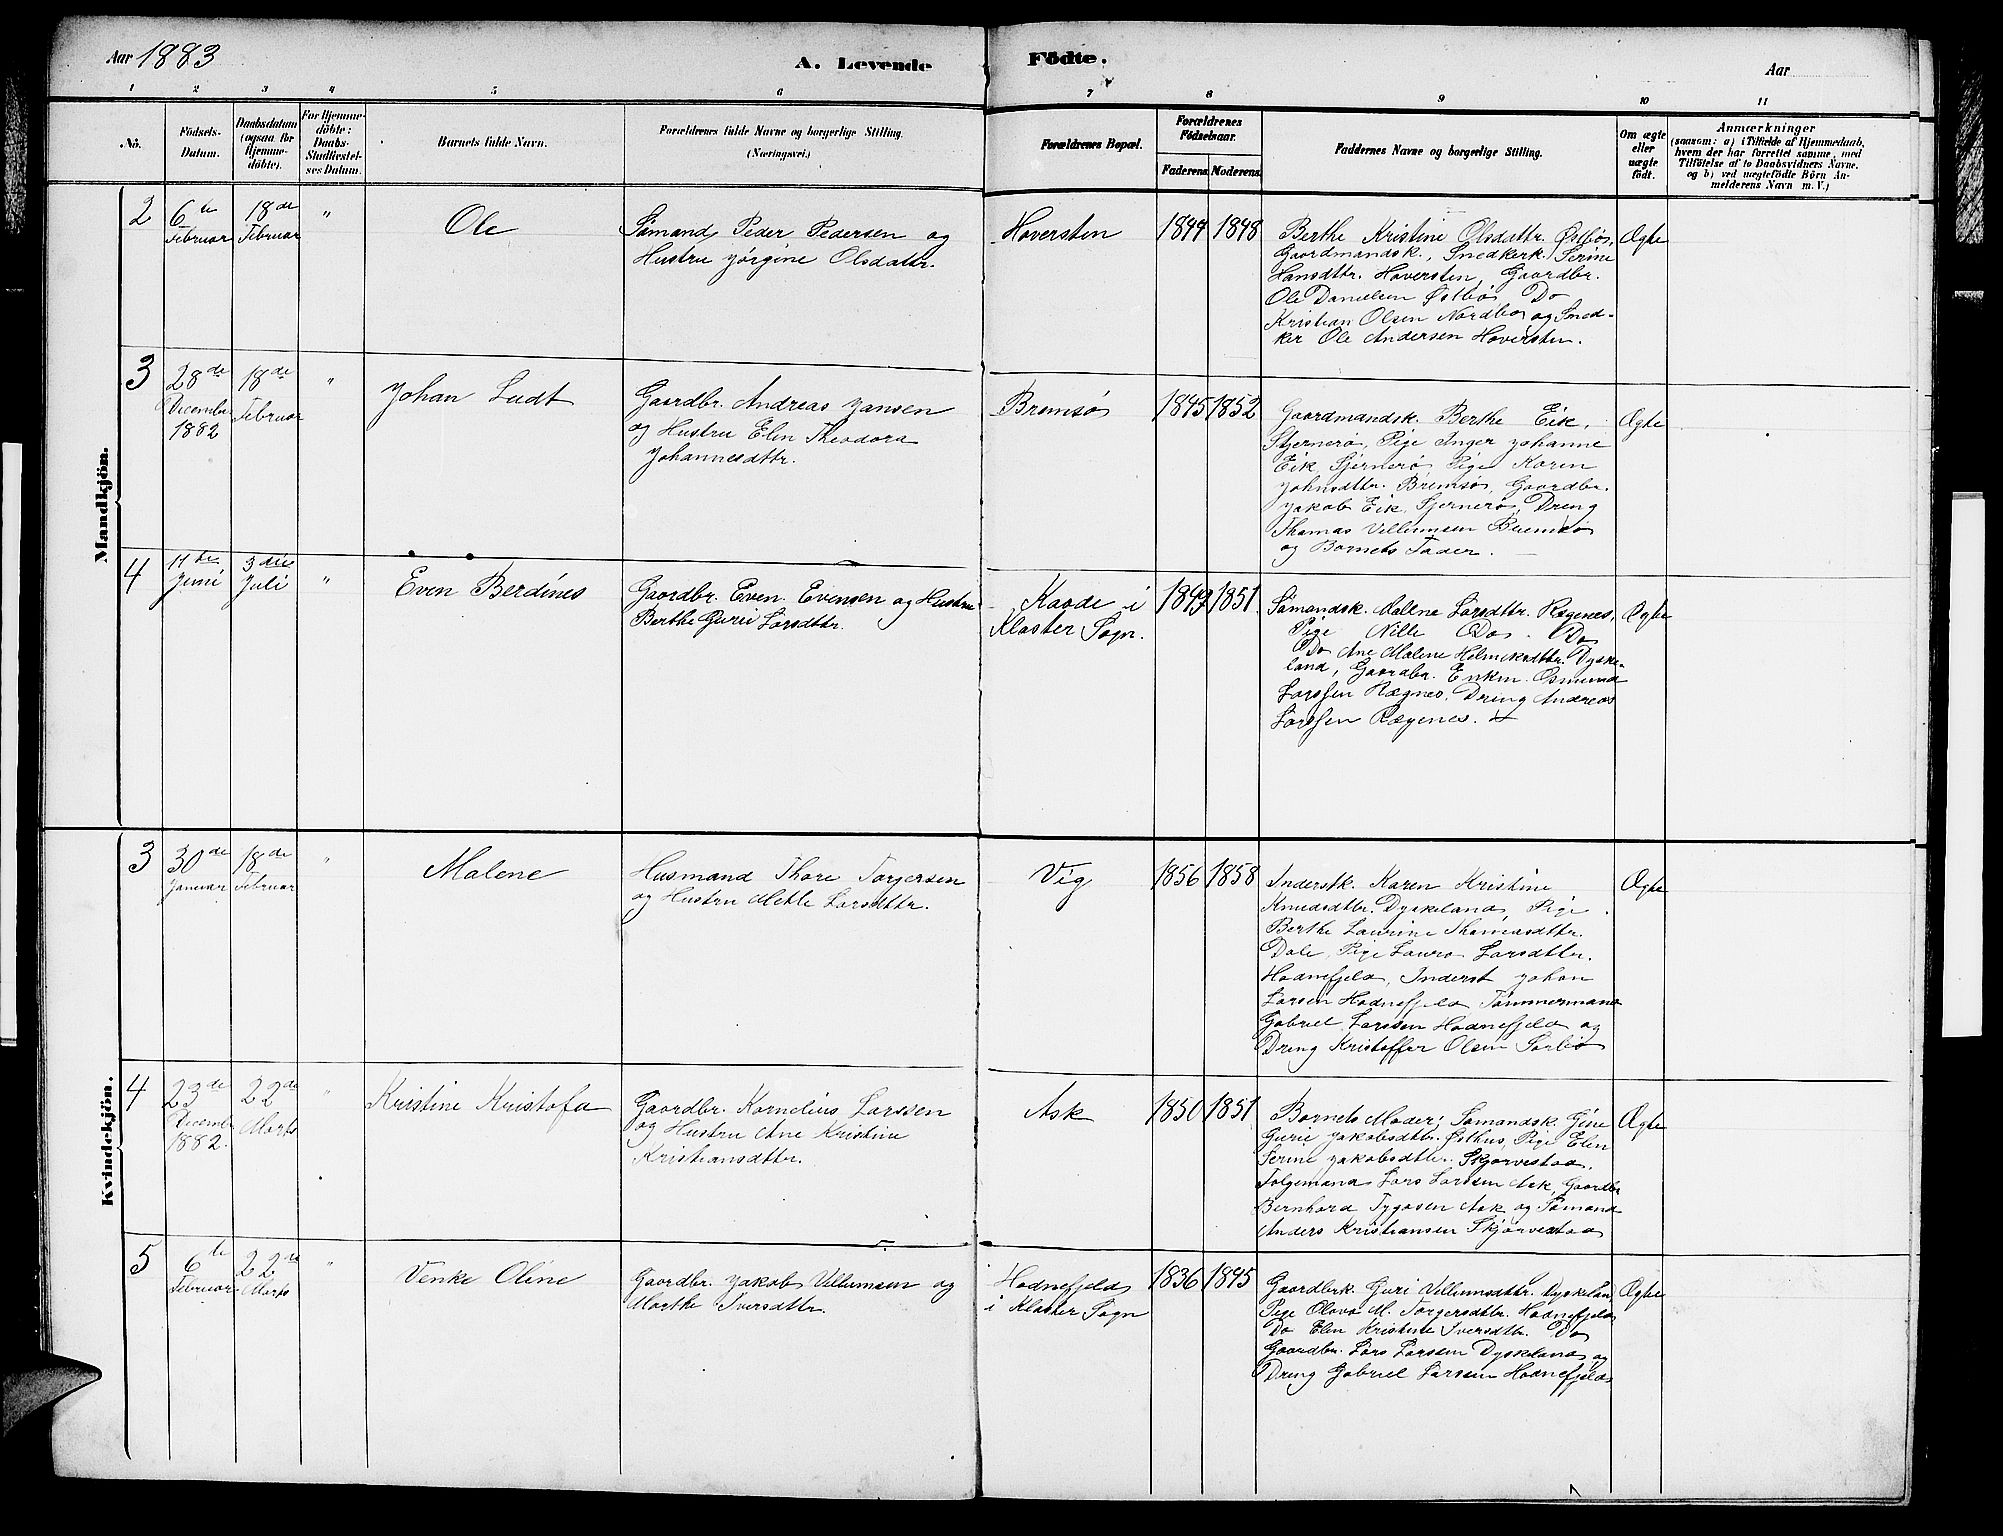 Aar 1883
A. Levende Födte.
Aar
1 2 3 4 5 6 7 8 9 10 11
No.
Födsels-
Datum.
Daabsdatum
(ogsaa for
Hjemme-
döbte).
For Hjemme-
döbte:
Daabs-
Stadfæstel-
ses Datum.
Barnets fulde Navn.
Forældrenes fulde Navne og borgerlige Stilling.
(Næringsvei.)
Forældrenes Bopæl.
Forældrenes
Födselsaar.
Faderens. Moderens.
Faddernes Navne og borgerlige Stilling.
Om ægte
eller
uægte
födt.
Anmærkninger
(saasom: a) i Tilfælde af Hjemmedaab,
hvem der har forrettet samme, med
Tilföielse af to Daabsvidners Navne,
og b) ved uægtefödte Börn An-
melderens Navn m. V.)
Mandkjön.
2
6te
Februar
18de
Februar
"
Ole
Sømand Peder Pedersen og
Hustru Jørgine Olsdattr.
Hoversten
1844 1848
Berthe Kristine Olsdattr. Østbø,
Gaardmandsk., Snedkerk. Serine
Hansdttr. Hoversten, Gaardbr.
Ole Danielsen Østbø Do
Kristian Olsen Nordbø og Sned-
ker Ole Andersen Hoversten.
Ægte
3
28de
Decembr.
1882
18de
Februar
"
Johan Ludt
Gaardbr. Andreas Jansen
og Hustru Elen Theodora
Johannesdttr.
Bremsø
1845 1852
Gaardmandsk. Berthe Eik,
Stjernerø, Pige Inger Johanne
Eik, Sjernerø, Pige Karen
Johnsdttr. Bremsø, Gaardbr.
Jakob Eik, Sjernerø, Dreng
Thomas Villumsen Bremsø
og Barnets Fader.
Ægte
4
11te
Juni
3die
Juli
"
Even Berdines
Gaardbr. Even Evensen og Hustru
Berthe Gurie Larsdttr.
Kaade i
Kloster Sogn.
1849 1851
Sømandsk. Malene Larsdttr. Rægenes,
Pige Nille Do. Do
Do Ane Malene Helmiksdttr. Dyske-
land, Gaardbr. Enkm. Osmund
Larssen Rægnes. Dreng Andreas
Larssen Rægenes.
Ægte
Kvindekjön.
3
30de
Januar
18de
Februar
"
Malene
Husmand Thore Torgersen
og Hustru Mette Larsdttr.
Vig
1856 1858
Inderstk. Karen Kristine
Knudsdttr. Dyskeland, Pige
Berthe Laurine Thomasdttr.
Dale, Pige Laura Larsdttr.
Hodnefjeld, Inderst Johan
Larsen Hodnefjeld Tømmermand
Gabriel Larssen Hodnefjeld og
Dreng Kristoffer Olsen Sørbø
Ægte
4
23de
Decembr
1882.
22de
Marts
"
Kristine Kristofa
Gaardbr. Kornelius Larssen
og Hustru Ane Kristine
Kristiansdttr.
Ask
1850 1851
Barnets Moder; Sømandsk. Gine
Gurie Jakobsdttr. Østhus, Pige Elen
Serine Jakobsdttr. Skjørvestad,
Følgemand Lars Larssen Ask, Gaardbr
Bernhard Tygesen Ask og Sømand
Anders Kristiansen Skjørvestad
Ægte
5
6te
Februar
22de
Marts
"
Venke Oline
Gaardbr. Jakob Villumsen og
Marthe Iversdttr.
Hodnefjeld
i Kloster Sogn
1836 1845
Gaardbrk. Guri Villumsdttr. Dyskeland
Pige Olava M. Torgersdttr. Hodnefjeld
Do Elen Kristine Iversdttr. Do
Gaardbr. Lars Larssen Dyskeland og
Dreng Gabriel Larssen Hodnefjeld
Ægte